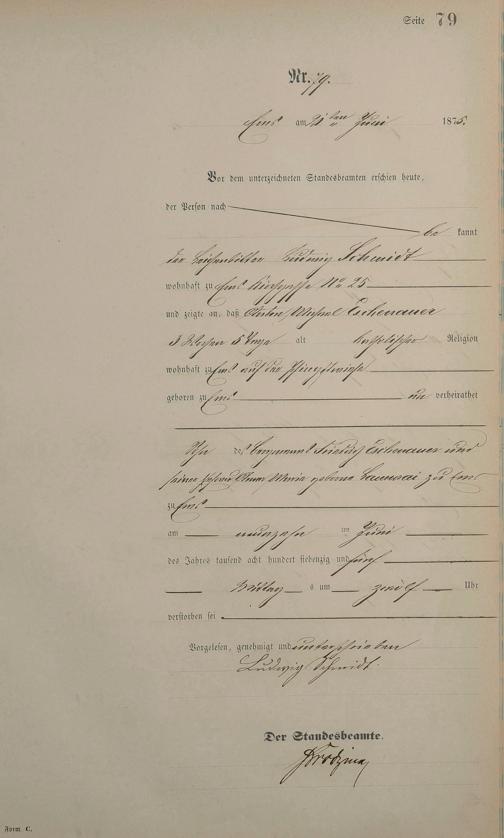 Seite 79
Nr. 79.
Ems am 21ten Juni 1875.
Vor dem unterzeichneten Standesbeamten erschien heute,
der Person nach be kannt
der Leichenbitter Ludwig Schmidt
wohnhaft zu Ems No 25
und zeigte an, daß Anton Michael Eschenauer
3 Wochen 5 Tage alt katholischer Religion
wohnhaft zu Ems auf der Pfingstweide
geboren zu Ems un verheirathet
Sohn des Bergmanns Eschenauer und
seiner Ehefrau Anna Maria geborne zu Ems
zu Ems
am neunzehn ten Juni
des Jahres tausend acht hundert siebenzig und fünf
Mittag s um zwölf Uhr
verstorben sei
Vorgelesen, genehmigt und unterschrieben
Ludwig Schmidt.
Der Standesbeamte.
Form C.